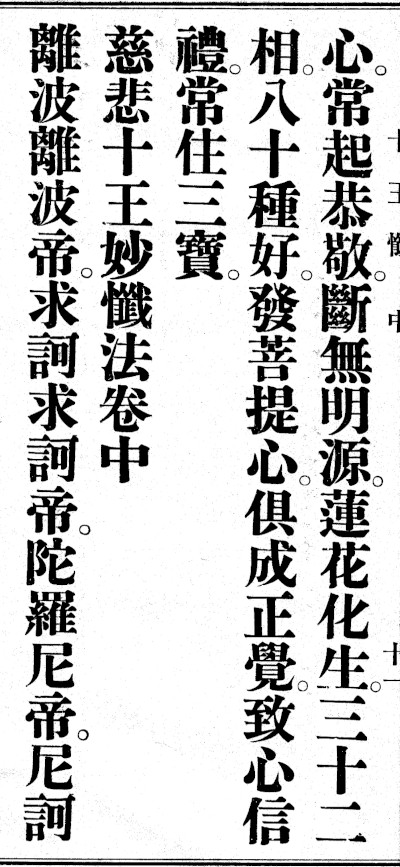 十王懺中 十一
心。常起恭敬。斷無明源。蓮花化生。三十二
相。八十種好。發菩提心。俱成正覺。致心信
禮。常住三寶。
慈悲十王妙懺法卷中
離波離波帝。求訶求訶帝。陀羅尼帝。尼訶